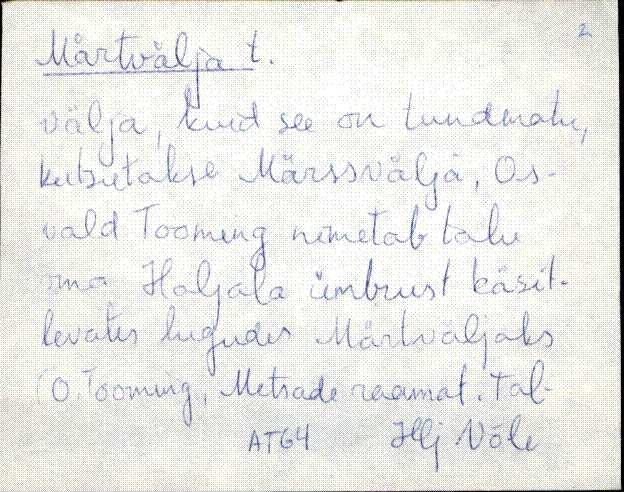 2
Märtvälja t.
välja, kuid see on tundmatu,
kutsutakse Märssvälja, Os-
vald Tooming nimetab talu
oma Haljala ümbrust käsit-
levates lugudes Märtväljaks
(O. Tooming, Metsade raamat. Tal-
AT64 Hlj Võle